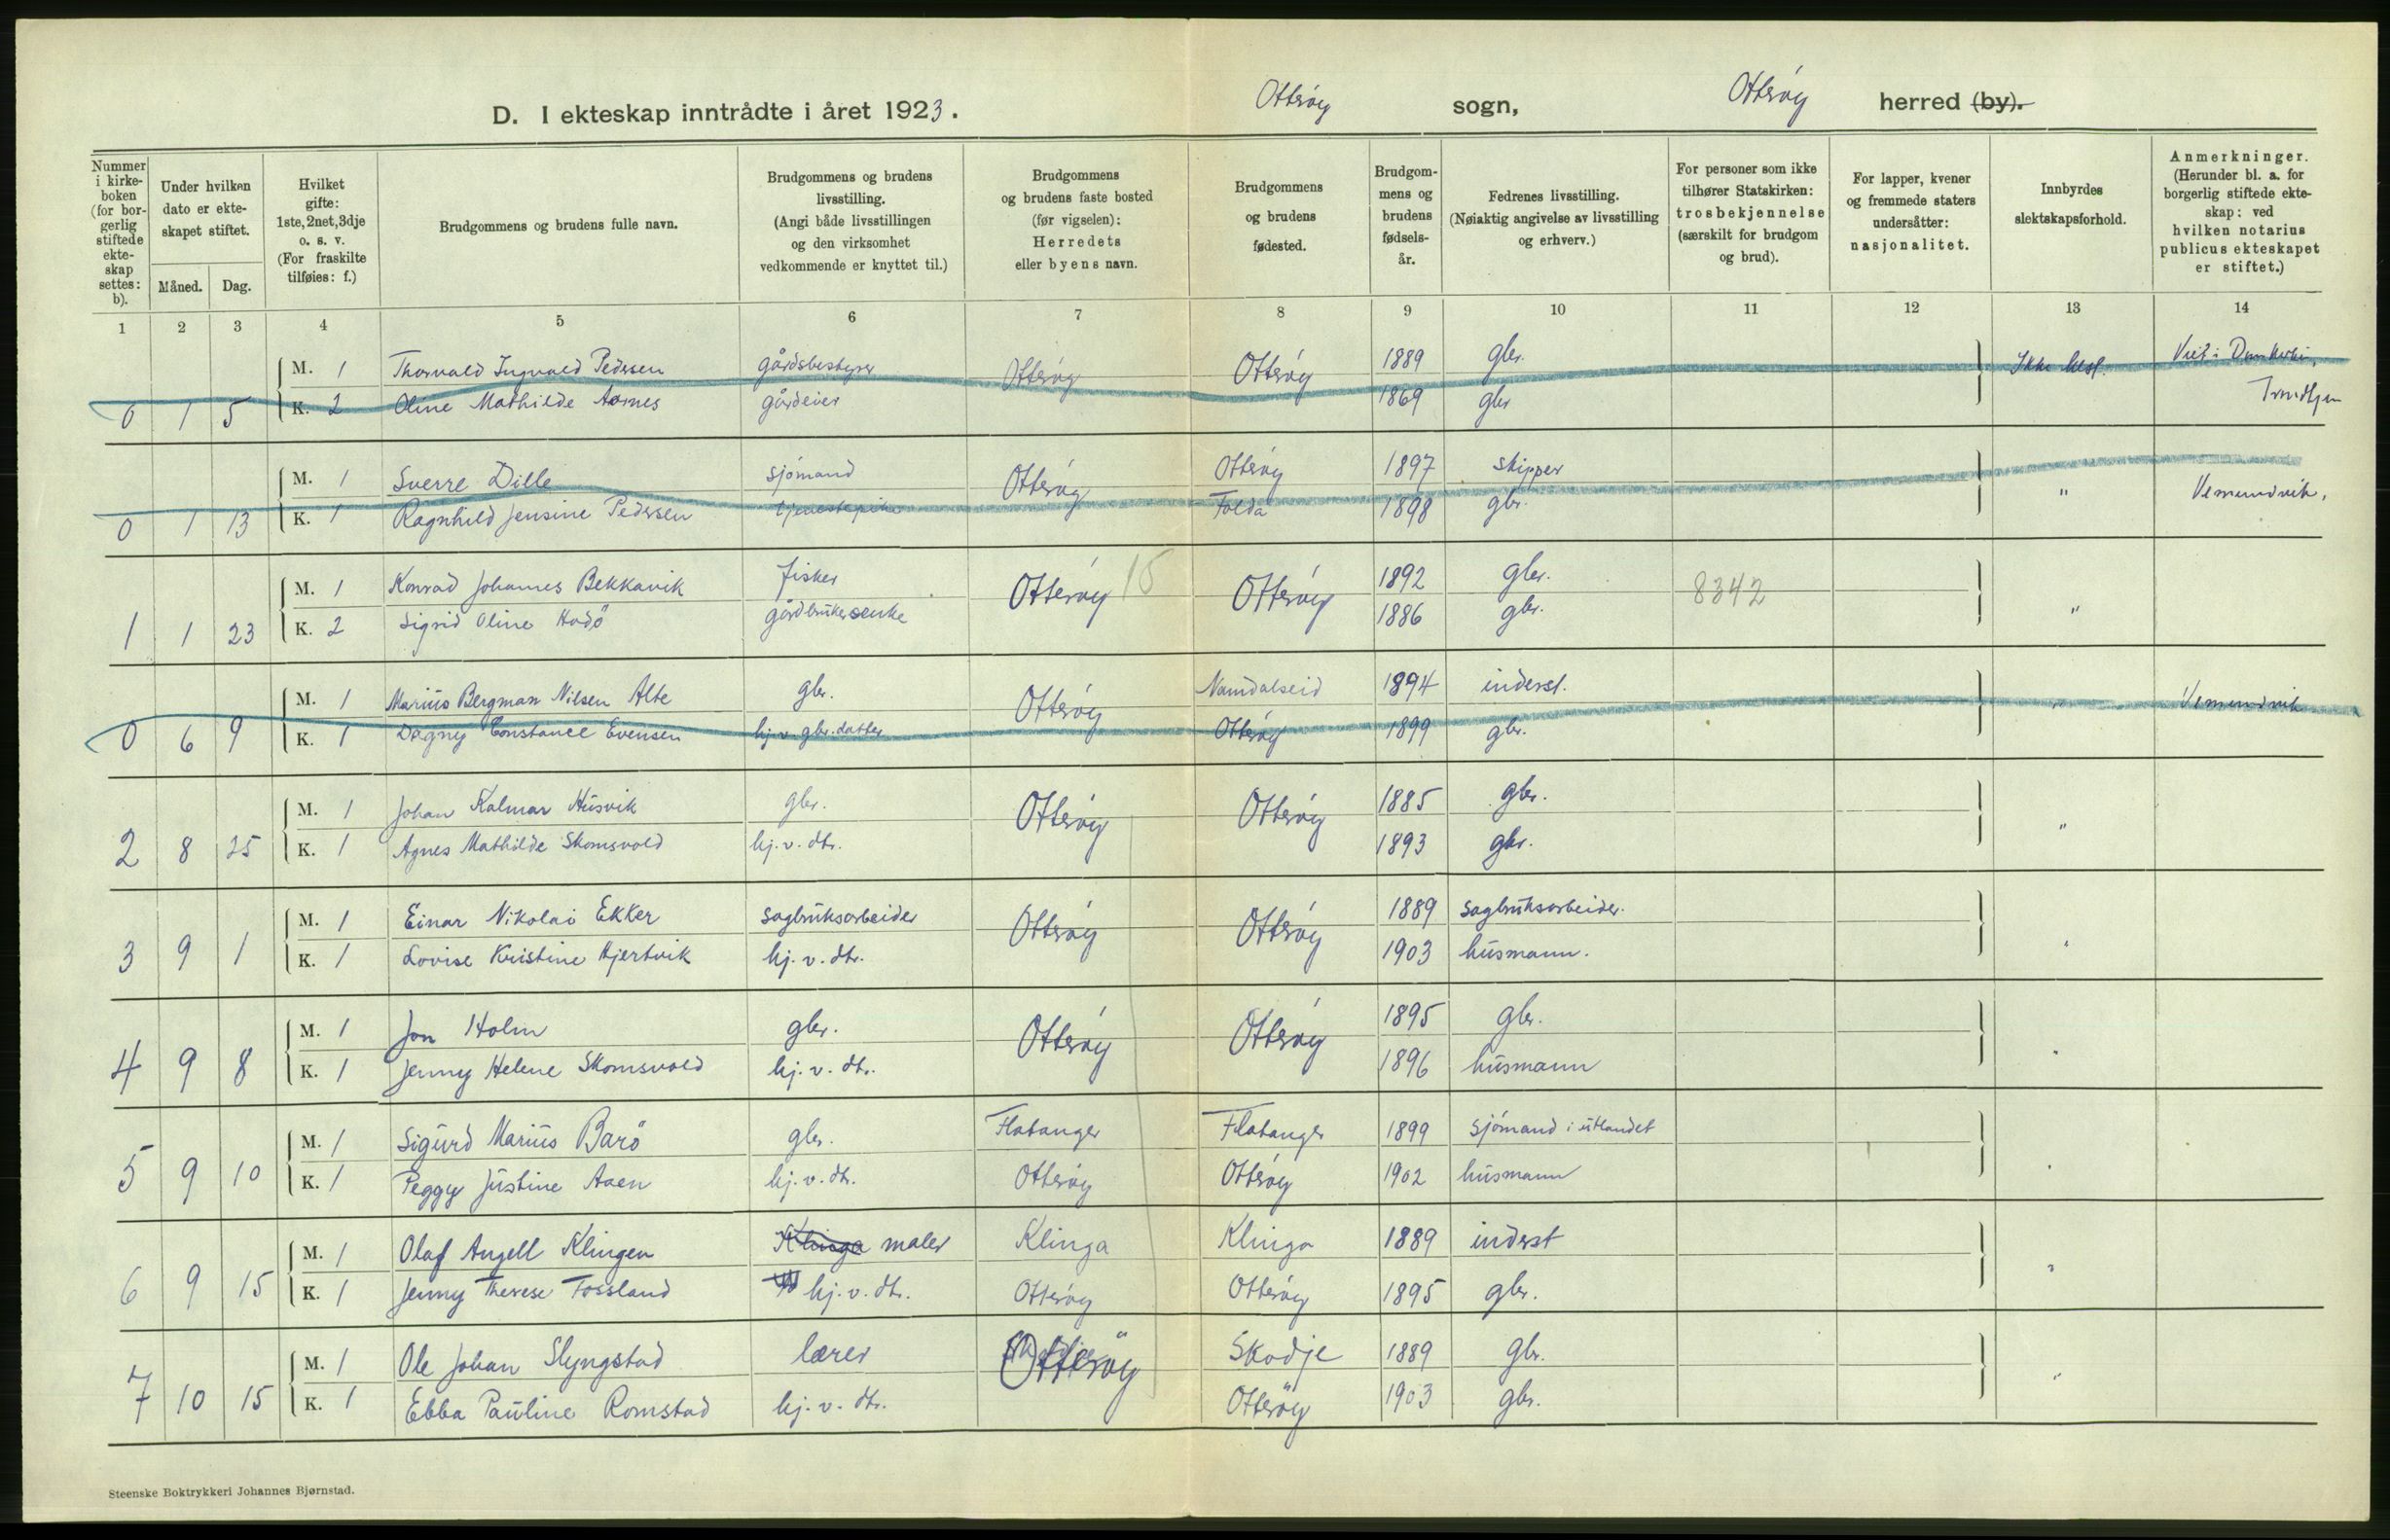 D. I ekteskap inntrådte i året 1923.
Otterøy sogn, Otterøy herred (by).
Nummer i kirkeboken (for borgerlig stiftede ekteskap settes: b).
Under hvilken dato er ekteskapet stiftet.
Måned. Dag.
Hvilket gifte: 1ste, 2net, 3dje o. s. v. (For fraskilte tilføies: f.)
Brudgommens og brudens fulle navn.
Brudgommens og brudens livsstilling. (Angi både livsstillingen og den virksomhet vedkommende er knyttet til.)
Brudgommens og brudens faste bosted (før vigselen): Herredets eller byens navn.
Brudgommens og brudens fødested.
Brudgommens og brudens fødselsår.
Fedrenes livsstilling. (Nøiaktig angivelse av livsstilling og erhverv.)
For personer som ikke tilhører Statskirken: trosbekjennelse (særskilt for brudgom og brud).
For lapper, kvener og fremmede staters undersåtter: nasjonalitet.
Innbyrdes slektskapsforhold.
Anmerkninger. (Herunder bl. a. for borgerlig stiftede ekteskap: ved hvilken notarius publicus ekteskapet er stiftet.)
1 2 3 4 5 6 7 8 9 10 11 12 13 14
M. 1 Thorvald Ingvald Pedersen gårdsbestyrer Otterøy Otterøy 1889 gbr. Ikke besl. Viet i
0 1 5 K. 2 Oline Mathilde Aarnes gårdeier 1869 gbr Trondhjem
M. 1 Sverre Dille sjómand Otterøy Otterøy 1897 skipper " Vemundvik.
0 1 13 K. 1 Ragnhild Jensine Pedersen tjenestepike Folda 1898 gbr.
M. 1 Konrad Johannes Bekkavik fisker Otterøy 15 Otterøy 1892 gbr. 8342 "
1 1 23 K. 2 Sigrid Oline Hodö gårdbrukerenke 1886 gbr.
M. 1 Marius Bergman Nilsen Alte gbr. Otterøy Namdalseid 1894 inderst. " Vemundvik
0 6 9 K. 1 Dagny Constance Evensen hj. v. gbr. datter Otterøy 1899 gbr.
M. 1 Johan Kalmar Husvik gbr. Otterøy Otterøy 1885 gbr. "
2 8 25 K. 1 Agnes Mathilde Skomsvold hj. v. dtr. 1893 gbr.
M. 1 Einar Nikolai Ekker sagbruksarbeider Otterøy Otterøy 1889 sagbruksarbeider.
3 9 1 K. 1 Lovise Kristine Hjertvik hj. v. dtr. 1903 husmann.
M. 1 Jon Holm gbr. Otterøy Otterøy 1895 gbr.
4 9 8 K. 1 Jenny Helene Skomsvold hj. v. dtr. 1896 husmann
M. 1 Sigurd Marius Barö gbr. Flatanger Flatanger 1899 sjómand i utlandet
5 9 10 K. 1 Peggy Justine Aaen hj. v. dtr. Otterøy Otterøy 1902 husmann
M. 1 Olaf Angell Klingen Klinga maler Klinga Klinga 1889 inderst "
6 9 15 K. 1 Jenny Therese Fossland hj. v. dtr. Otterøy Otterøy 1895 gbr.
M. 1 Ole Johan Slyngstad lærer Otterøy Skodje 1889 gbr. "
7 10 15 K. 1 Ebba Pauline Romstad hj. v. dtr. Otterøy 1903 gbr.
Steenske Boktrykkeri Johannes Bjørnstad.